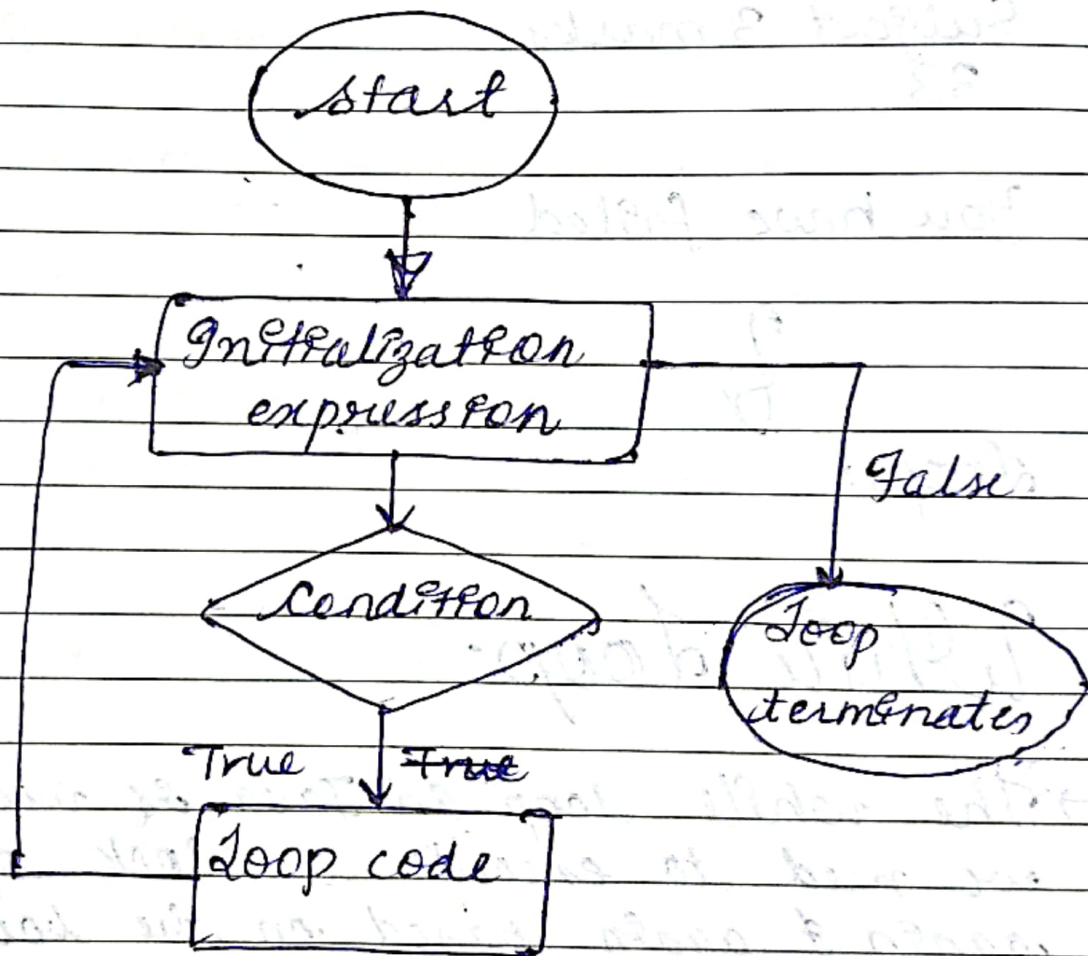 Start
Initialization
expression
False
Condition
Loop
terminates
True True
Loop code